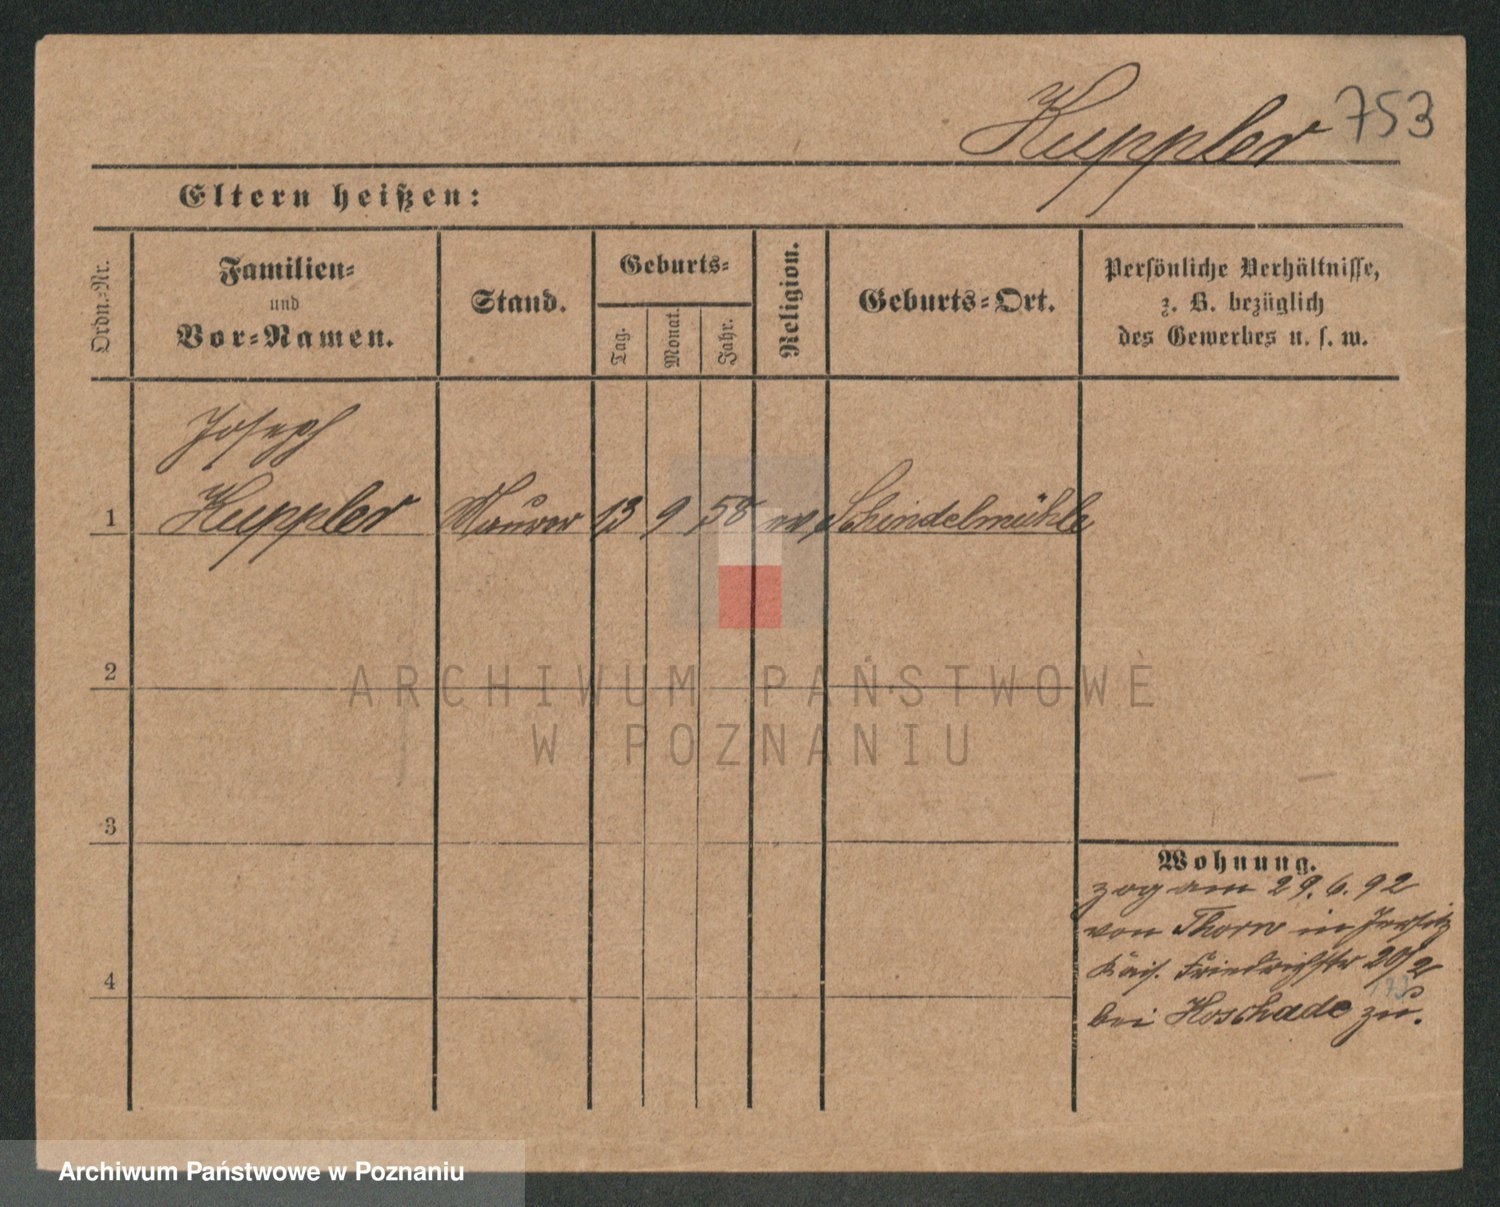 Kuppler 753
Eltern heißen:
Ordn.-Nr.
Familien-
und
Vor-Namen.
Stand.
Geburts-
Tag.
Monat.
Jahr.
Religion.
Geburts-Ort.
Persönliche Verhältnisse,
z. B. bezüglich
des Gewerbes u. s. w.
Joseph
1 Kuppler Maurer 13 9 58 Schindelmühle
2
ARCHIWUM PAŃSTWOWE
W POZNANIU
3
Wohnung.
zog am 29. 6. 92
von Thorn in Jersitz
Kais. Friedrichstr 20/2
4
bei Hoschade zu.
Archiwum Państwowe w Poznaniu